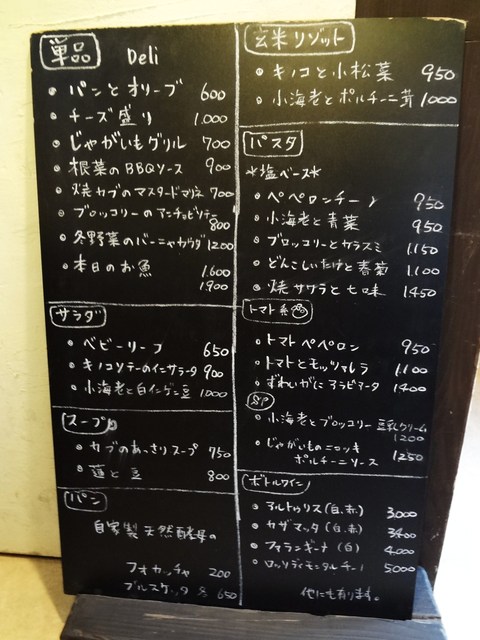 単品 Deli
・パンとオリーブ 600
・チーズ盛り 1.000
・じゃがいもグリル 700
・根菜のBBQソース 900
・焼カブのマスタードマリネ 700
・ブロッコリーのアンチョビソテー 800
・冬野菜のバーニャカウダ 1200
・本日のお魚 1.600
1900
サラダ
・ベビーリーフ 650
・キノコソテーのインサラータ 900
・小海老と白インゲン豆 1000
スープ
・カブのあっさりスープ 750
・蓮と豆 800
パン
自家製天然酵母の
フォカッチャ 200
ブルスケッタ 650
玄米リゾット
・キノコと小松菜 950
・小海老とポルチーニ茸 1000
パスタ
*塩ベース*
・ペペロンチーノ 950
・小海老と青菜 950
・ブロッコリーとカラスミ 1.150
・どんこしいたけと春菊 1.100
・焼サワラと七味 1.450
トマト系
・トマトペペロン 950
・トマトとモッツァレラ 1.100
・ずわいがにアラビアータ 1.400
SP
・小海老とブロッコリー 豆乳クリーム
1200
・じゃがいものニョッキ
ポルチーニソース 1250
ボトルワイン
・アルトゥリス(白.赤) 3.000
・カザマッタ(白.赤) 3400
・ファランギーナ(白) 4.000
・ロッソディモンタルチーノ 5000
他にも有ります。